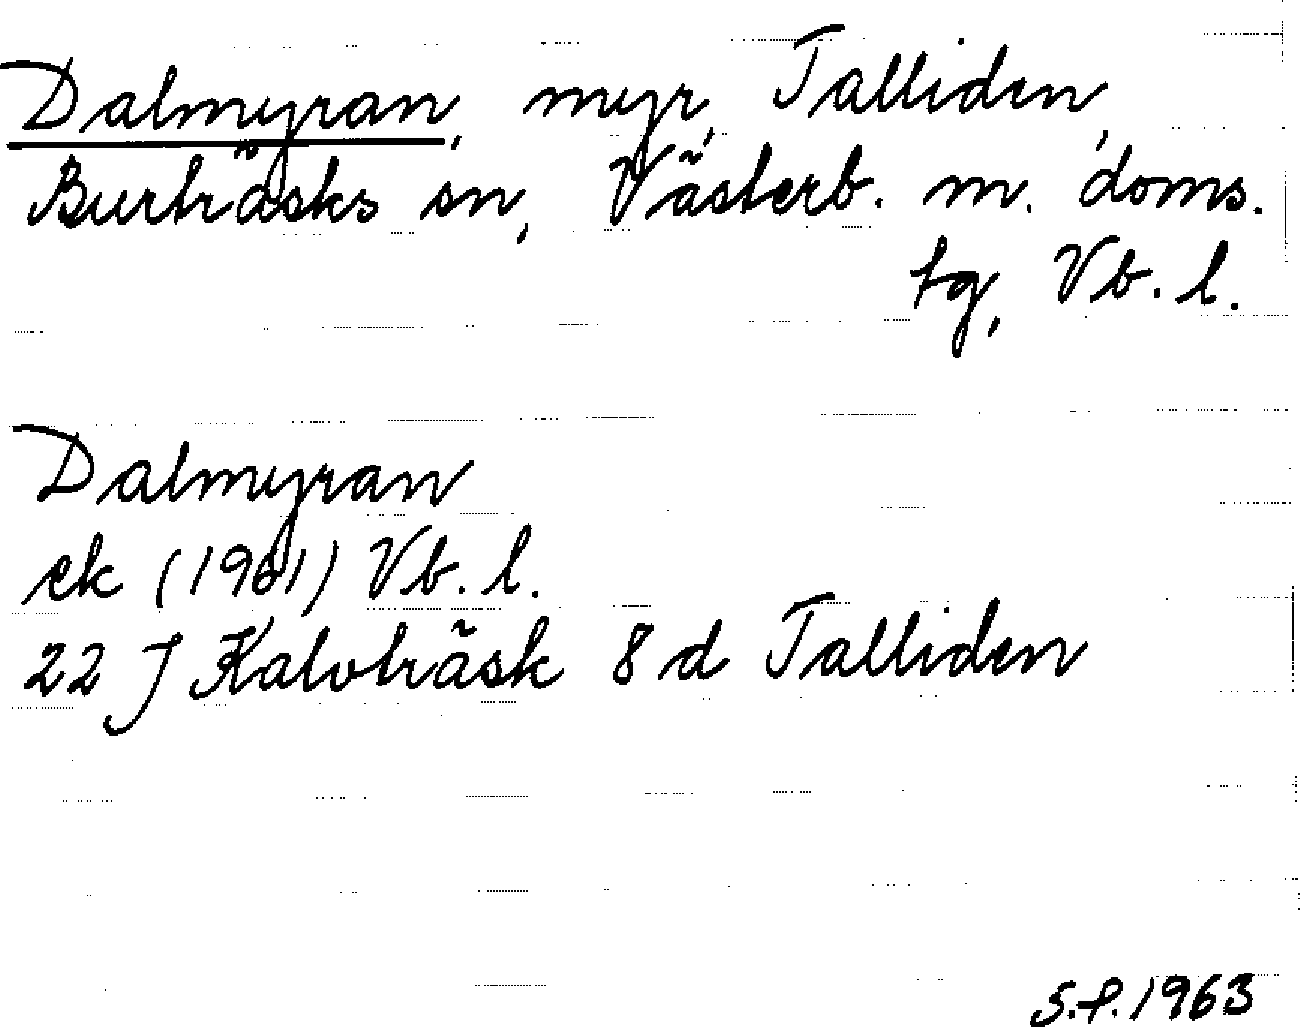 Dalmyran, myr, Talliden,
Burträsks sn, Västerb. m. doms.
tg, Vb. l.
Dalmyran
ek (1961) Vb. l.
22 J Kalvträsk 8 d Talliden
S.P. 1963